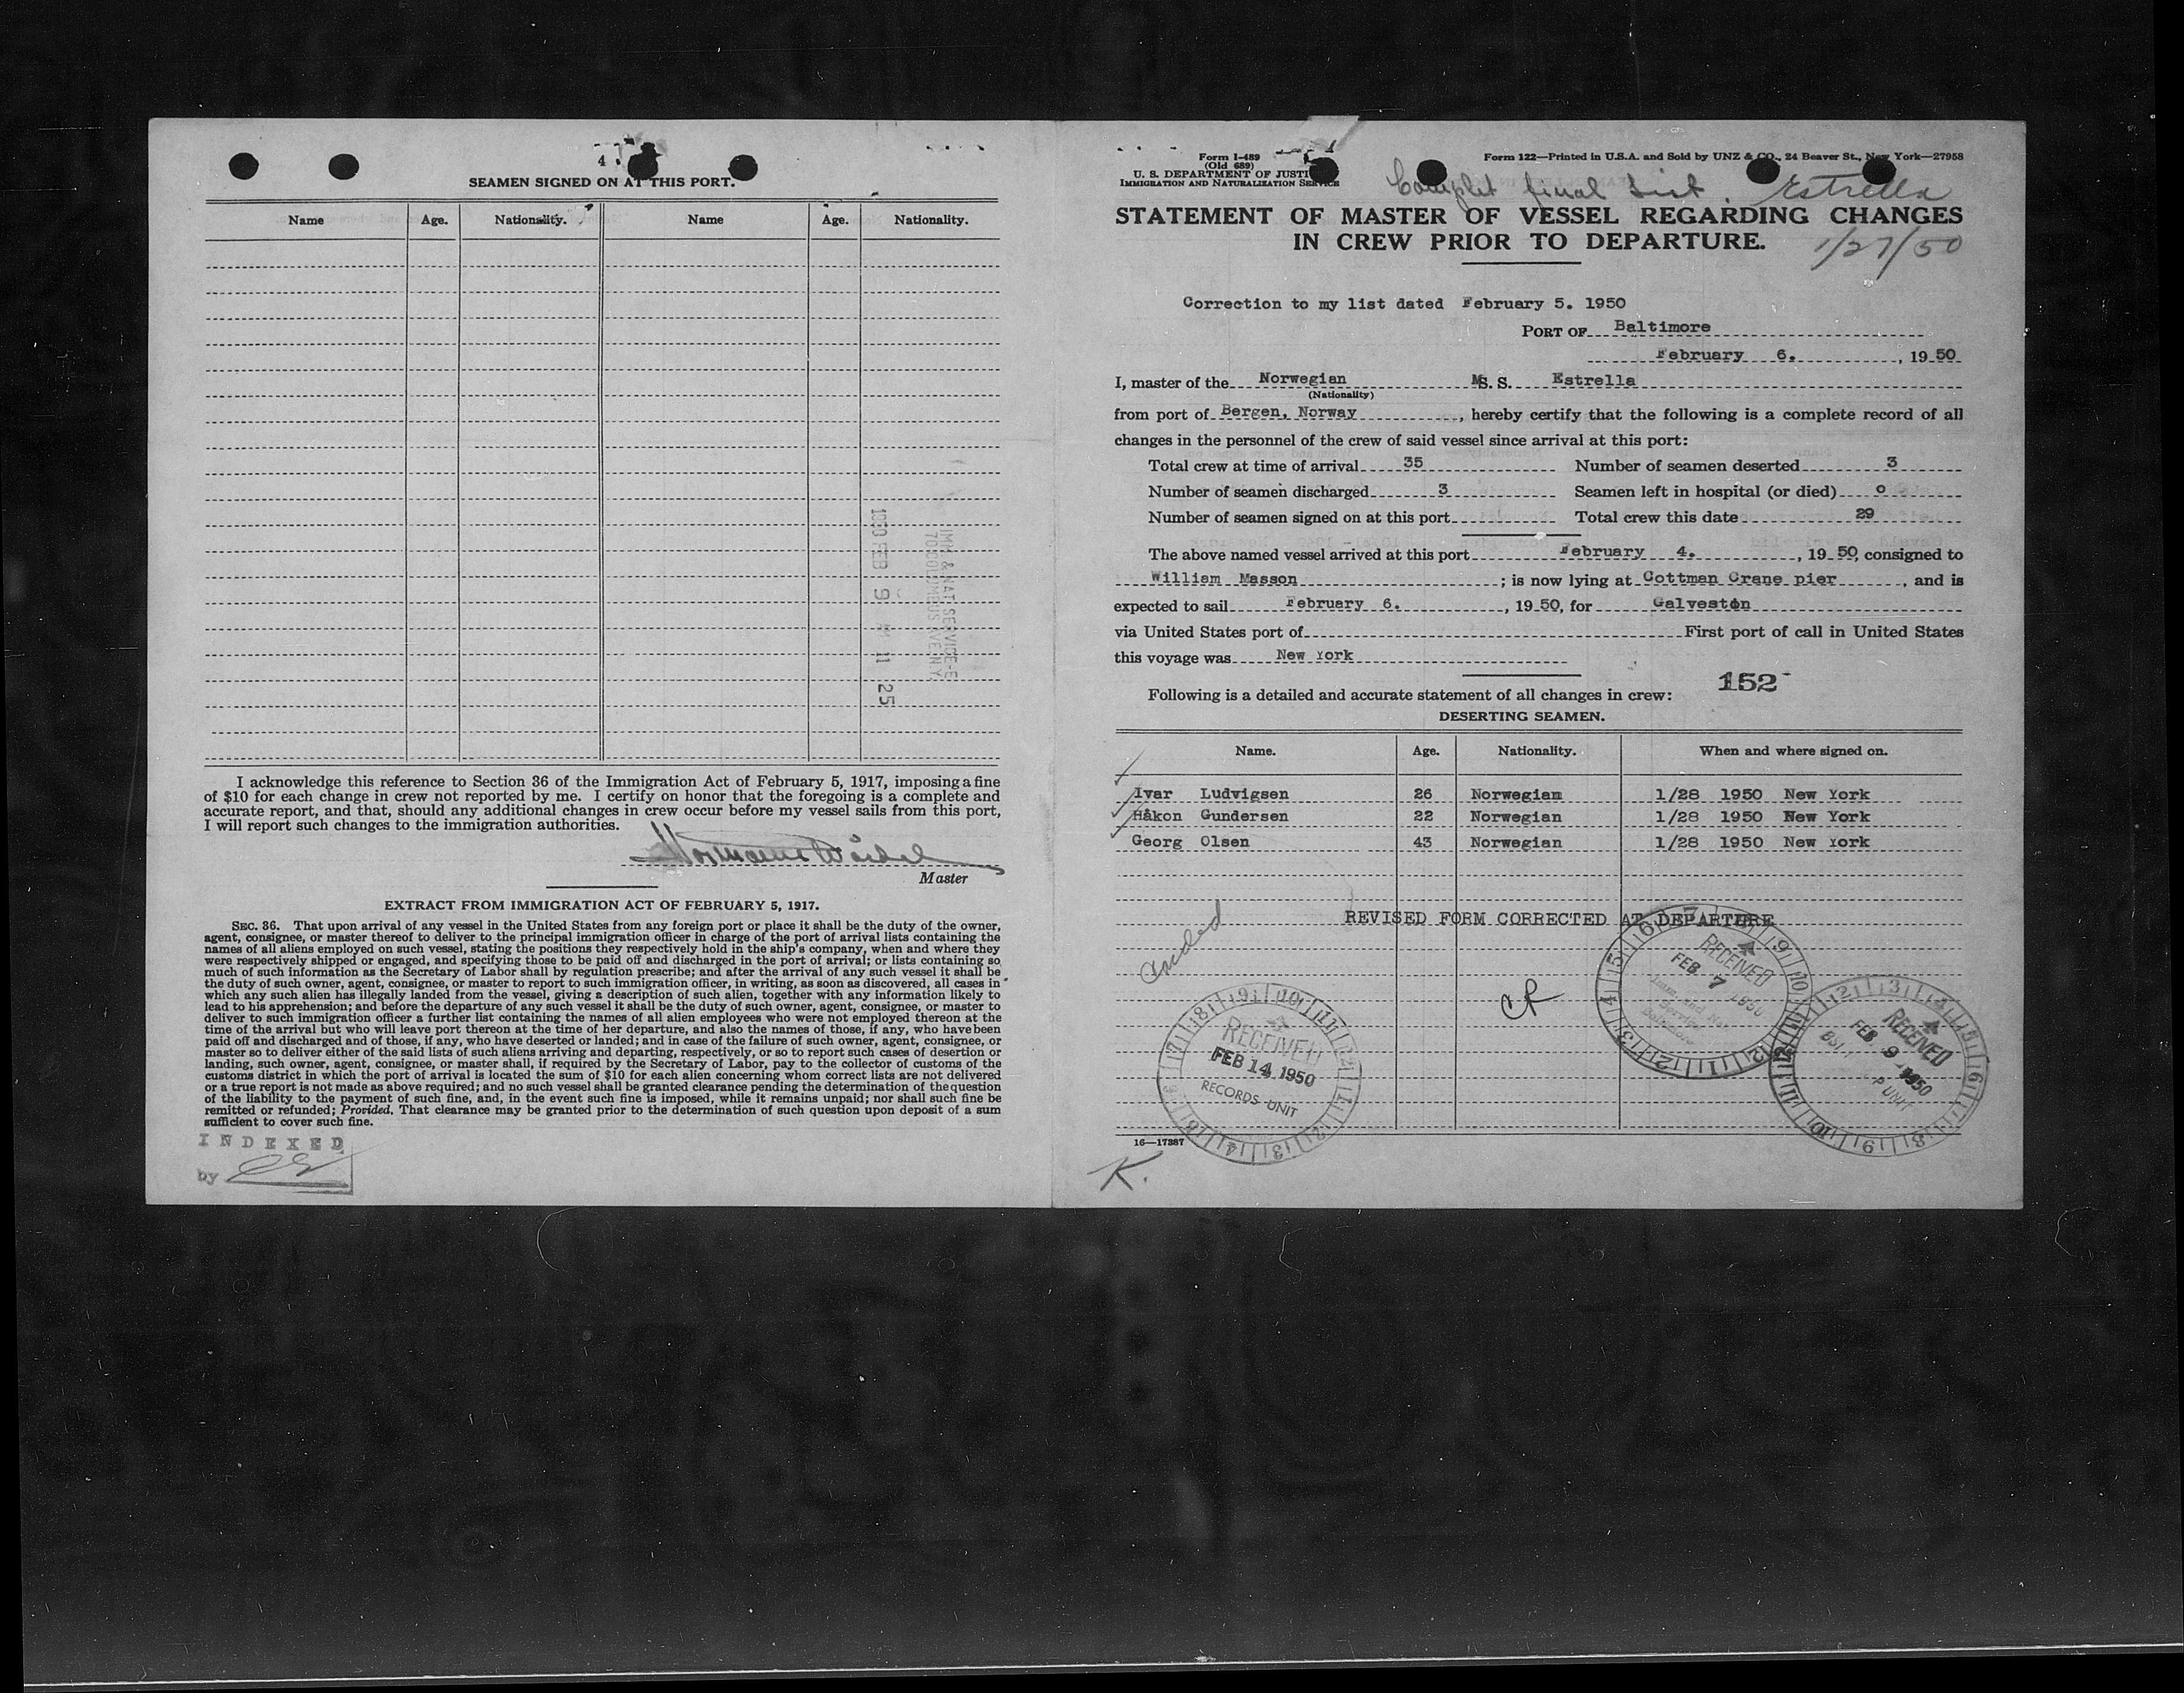 4
SEAMEN SIGNED ON AT THIS PORT.
Name Age. Nationality. Name Age. Nationality.
1950 FEB 9 11 25
IMM & NAT. SERVICE-E
70 COLUMBUS AVE N.Y.
I acknowledge this reference to Section 36 of the Immigration Act of February 5, 1917, imposing a fine
of $10 for each change in crew not reported by me. I certify on honor that the foregoing is a complete and
accurate report, and that, should any additional changes in crew occur before my vessel sails from this port,
I will report such changes to the immigration authorities.
Master
EXTRACT FROM IMMIGRATION ACT OF FEBRUARY 5, 1917.
SEC. 36. That upon arrival of any vessel in the United States from any foreign port or place it shall be the duty of the owner,
agent, consignee, or master thereof to deliver to the principal immigration officer in charge of the port of arrival lists containing the
names of all aliens employed on such vessel, stating the positions they respectively hold in the ship's company, when and where they
were respectively shipped or engaged, and specifying those to be paid off and discharged in the port of arrival; or lists containing so
much of such information as the Secretary of Labor shall by regulation prescribe; and after the arrival of any such vessel it shall be
the duty of such owner, agent, consignee, or master to report to such immigration officer, in writing, as soon as discovered, all cases in
which any such alien has illegally landed from the vessel, giving a description of such alien, together with any information likely to
lead to his apprehension; and before the departure of any such vessel it shall be the duty of such owner, agent, consignee, or master to
deliver to such immigration officer a further list containing the names of all alien employees who were not employed thereon at the
time of the arrival but who will leave port thereon at the time of her departure, and also the names of those, if any, who have been
paid off and discharged and of those, if any, who have deserted or landed; and in case of the failure of such owner, agent, consignee, or
master so to deliver either of the said lists of such aliens arriving and departing, respectively, or so to report such cases of desertion or
landing, such owner, agent, consignee, or master shall, if required by the Secretary of Labor, pay to the collector of customs of the
customs district in which the port of arrival is located the sum of $10 for each alien concerning whom correct lists are not delivered
or a true report is not made as above required; and no such vessel shall be granted clearance pending the determination of the question
of the liability to the payment of such fine, and, in the event such fine is imposed, while it remains unpaid; nor shall such fine be
remitted or refunded; Provided, That clearance may be granted prior to the determination of such question upon deposit of a sum
sufficient to cover such fine.
INDEXED
by
Form I-489
(Old 689)
U. S. DEPARTMENT OF JUSTI
IMMIGRATION AND NATURALIZATION SERVICE
Form 122—Printed in U.S.A. and Sold by UNZ & CO., 24 Beaver St., New York—27958
Complet final List. Estrella
STATEMENT OF MASTER OF VESSEL REGARDING CHANGES
IN CREW PRIOR TO DEPARTURE.
1/27/50
Correction to my list dated February 5. 1950
PORT OF Baltimore
February 6. , 19 50
I, master of the Norwegian MS. S. Estrella
(Nationality)
from port of Bergen, Norway , hereby certify that the following is a complete record of all
changes in the personnel of the crew of said vessel since arrival at this port:
Total crew at time of arrival 35 Number of seamen deserted 3
Number of seamen discharged 3 Seamen left in hospital (or died) 0
Number of seamen signed on at this port Total crew this date 29
The above named vessel arrived at this port February 4. , 19 50, consigned to
William Masson ; is now lying at Cottman Crane pier , and is
expected to sail February 6. , 19 50, for Galveston
via United States port of First port of call in United States
this voyage was New York
152
Following is a detailed and accurate statement of all changes in crew:
DESERTING SEAMEN.
Name. Age. Nationality. When and where signed on.
Ivar Ludvigsen 26 Norwegian 1/28 1950 New York
Håkon Gundersen 22 Norwegian 1/28 1950 New York
Georg Olsen 43 Norwegian 1/28 1950 New York
REVISED FORM CORRECTED AT DEPARTURE
CR
RECEIVED
FEB 7 1950
RECEIVED
FEB 9 1950
P UNIT
RECEIVED
FEB 14 1950
RECORDS UNIT
16—17387
K.